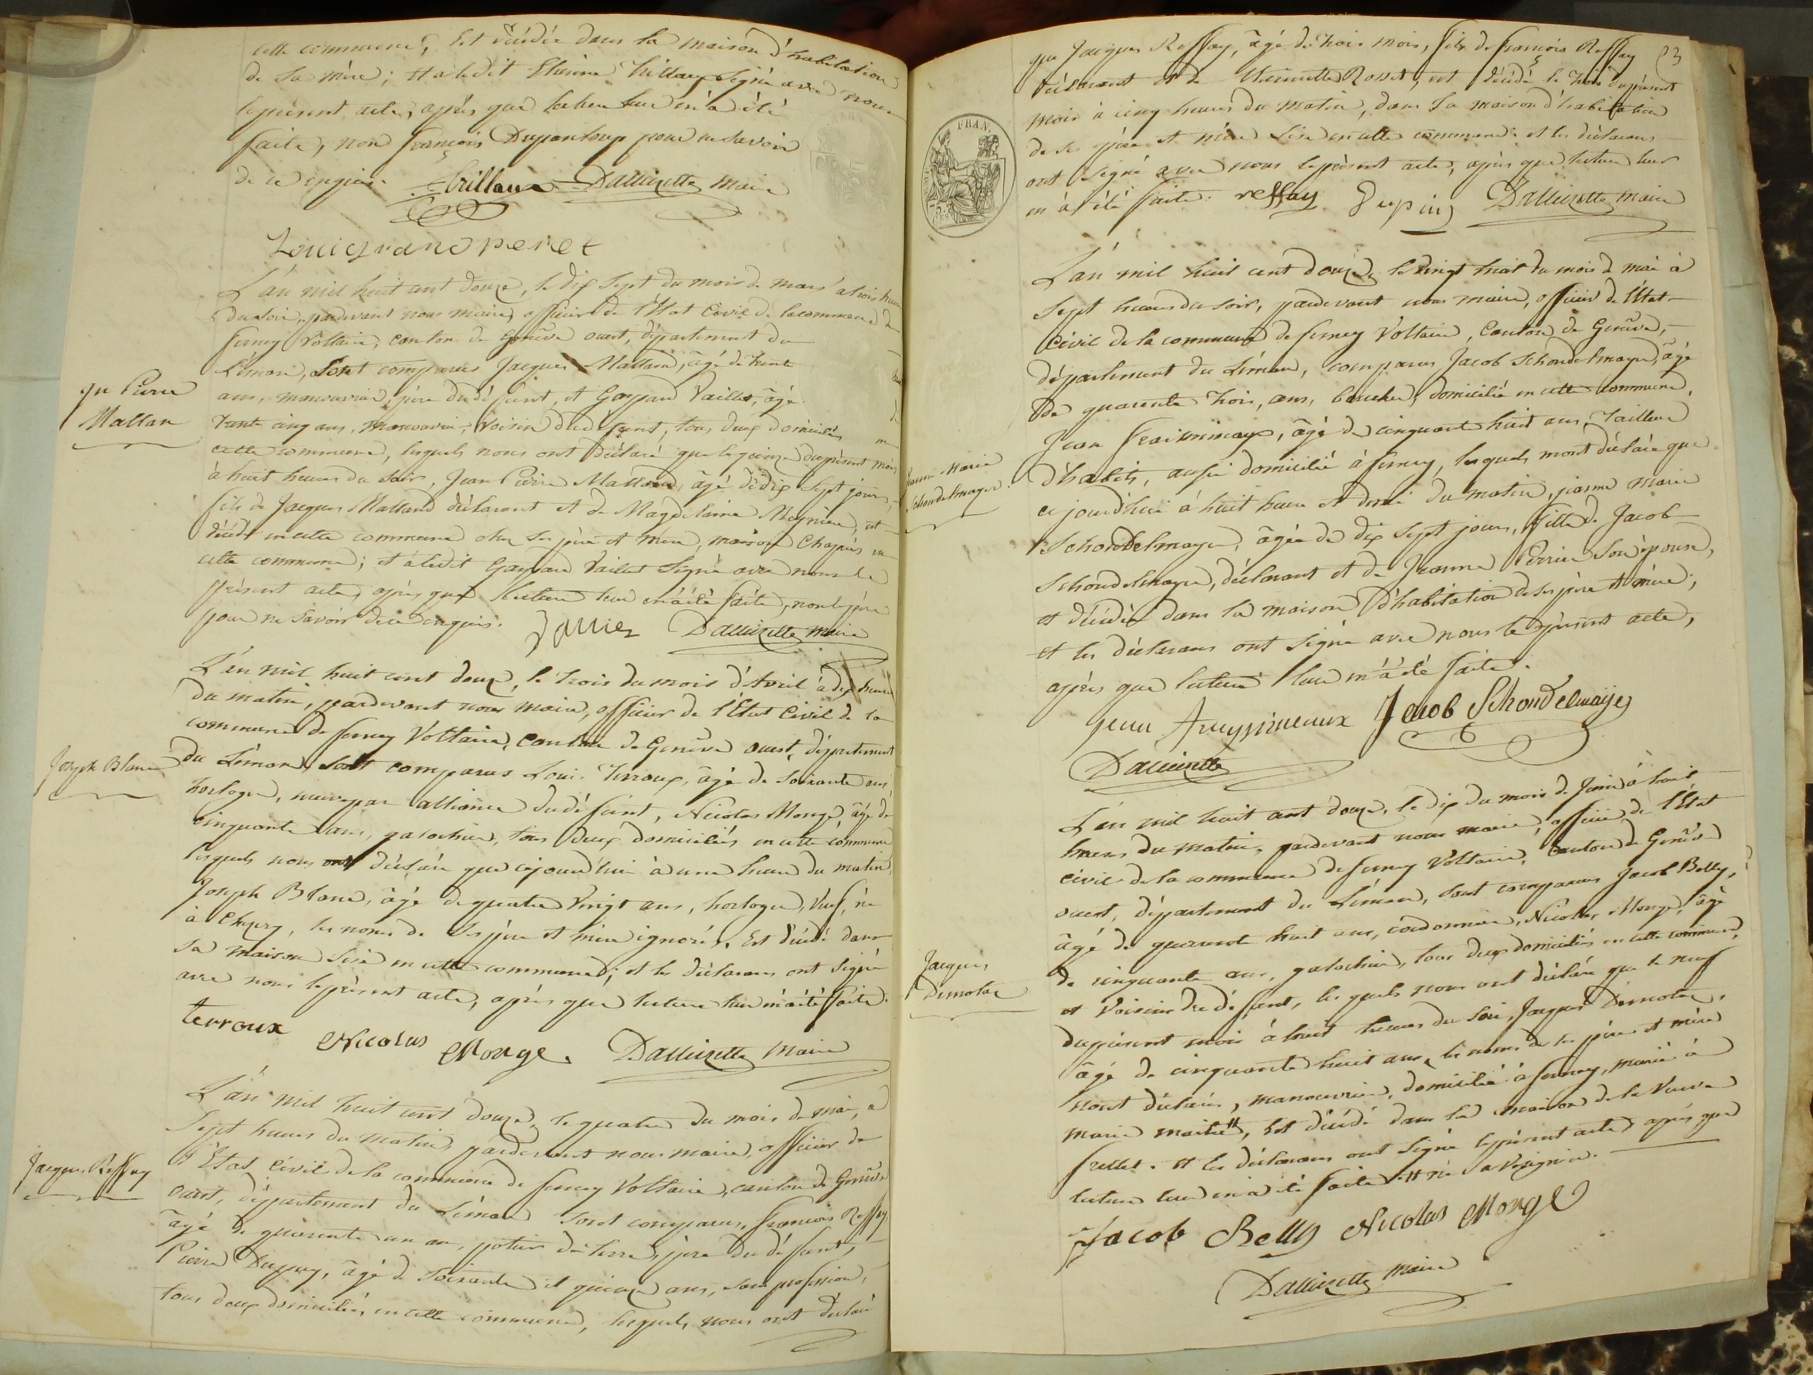 cette commune, Est décédée dans la maison d'habitation
de sa mère; et a ledit Etienne signé avec nous
le présent acte, après que lecture leur en a été
faite, non françois Dupanloup pour ne savoir
de ce enquis. Dallizette maire
L'an mil huit cent douze, le dix sept du mois de mars à trois heures
du soir, pardevant nous maire, officier de l'Etat Civil de la commune de
ferney Voltaire, canton de Genêve ouest, département du
Léman, Sont comparus Jacques Mallan, âgé de trente
ans, manouvrier, père du défunt, et Gaspard Vaillet, âgé
trente cinq ans, Manouvrier, voisin du défunt, tous deux domiciliés en
cette commune, lesquels nous ont déclaré que le quinze du présent mois
à huit heures du soir, Jean Pierre Mallan, âgé de dix sept jours,
fils de Jacques Malland déclarant et de Magdelaine est
décédé en cette commune chez ses père et mère, maison en
cette commune; et a ledit Gaspard Vaillet signé avec nous le
présent acte, après que lecture leur en a été faite, non le père
pour ne savoir de ce enquis. Dallizette maire
qu Pierre
Mallan
L'an mil huit cent douze, le trois du mois d'Avril à dix heures
du matin, pardevant nous maire, officier de l'État Civil de la
commune de ferney Voltaire, canton de Genêve ouest, département
du Léman, Sont comparus Louis Terroux, âgé de soixante ans
horloger, neveu par alliance du défunt, Nicolas Monge, âgé de
cinquante ans, galochier, tous deux domiciliés en cette commune
lesquels nous ont déclaré que cejourd'hui à une heure du matin
Joseph Blanc, âgé de quatre vingt ans, horloger, Veuf, né
à les noms de ses père et mère ignorés, Est décédé dans
sa maison sise en cette commune; et les déclarans ont signé
avec nous le présent acte, après que lecture leur en a été faite.
terroux Nicolas Monge. Dallizette maire
Joseph Blanc
L'an mil huit cent douze, le quatre du mois de mai, à
Sept heures du matin, pardevant nous maire, officier de
l'État civil de la commune de ferney Voltaire, canton de Genêve
ouest, département du Léman Sont comparus, françois Reffay
âgé de quarante un an, potier de terre, père du défunt,
Pierre Dupuy, âgé de soixante et quinze ans, sans profession,
tous deux domiciliés en cette commune, lesquels nous ont déclaré
Jacques Reffay
que Jacques Reffay, âgé de trois mois, fils de françois Reffay
déclarant et de Rosset, est décédé le trois du présent
mois à cinq heures du matin, dans la maison d'habitation
de ses père et mère Sise en cette commune; et les déclarans
ont signé avec nous le présent acte, après que lecture leur
en a été faite. reffay Dupuy Dallizette maire
FRAN.
L'an mil huit cent douze, le vingt huit du mois de mai à
sept heures du soir, pardevant nous maire, officier de l'État
civil de la commune de ferney Voltaire, Canton de Genêve,
département du Léman, comparus Jacob Schondelmayer, âgé
de quarante trois, ans, boucher, domicilié en cette commune,
Jean âgé de cinquante huit ans, Tailleur
d'habits, aussi domicilié à ferney, lesquels m'ont déclaré que
cejourd'hui à huit heure et demi du matin, jeanne Marie
Schondelmayer, âgée de dix sept jours, fille de Jacob
Schondelmayer, déclarant et de Jeanne Perrin son épouse,
est décédée dans la maison d'habitation de ses père et mère;
et les déclarans ont signé avec nous le présent acte,
après que lecture leur en a été faite.
Jacob Schondelmayer
Dallizette
Jeanne Marie
Schondelmayer
L'an mil huit cent douze, le dix du mois de Juin à huit
heures du matin, pardevant nous maire, officier de l'État
civil de la commune de ferney Voltaire, Canton de Genêve
ouest, département du Léman, sont comparus Jacob Belly,
âgé de quarante huit ans, cordonnier, Nicolas Monge, âgé
de cinquante ans, galochier, tous deux domiciliés en cette commune,
et Voisins du défunt, lesquels nous ont déclaré que le neuf
du présent mois à huit heures du soir, Jacques Demolar,
âgé de cinquante huit ans, les noms de ses père et mère
non déclarés, manouvrier, domicilié à ferney, marié à
marie Est décédé dans la maison de la Veuve
et les déclarans ont signé le présent acte, après que
lecture leur en a été faite
Jacob Belly Nicolas Monge
Dallizette maire
Jacques
Demolar